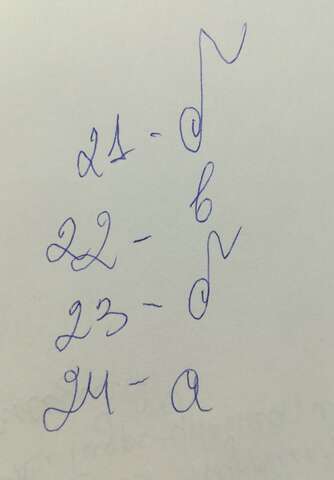 21 - б
22 - в
23 - б
24 - а